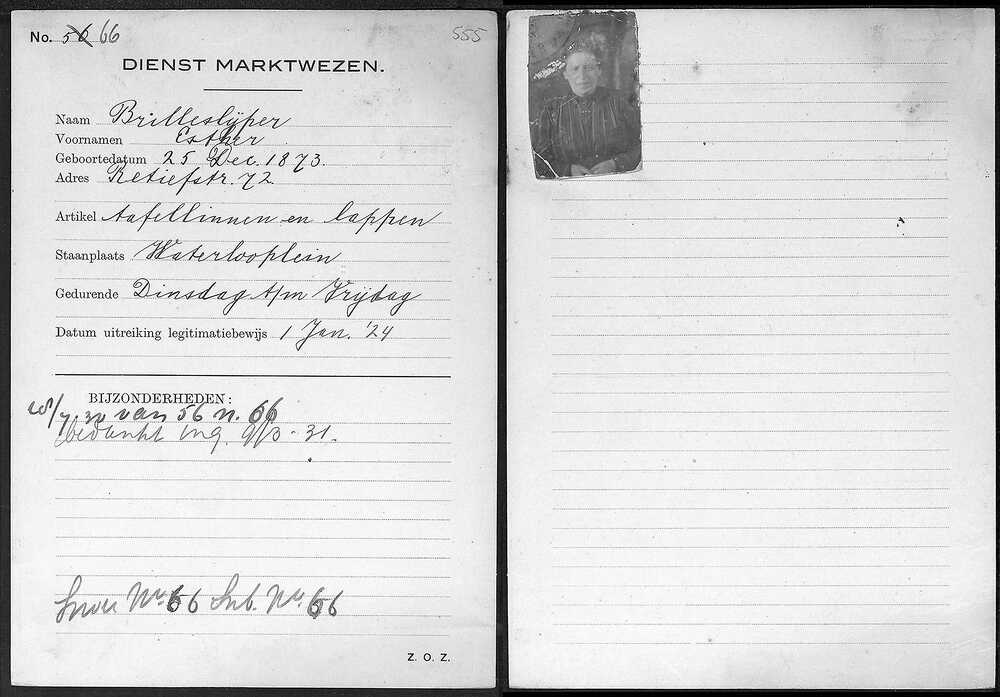 No. 56 66 555
DIENST MARKTWEZEN.
Naam Brilleslijper
Voornamen Esther
Geboortedatum 25 Dec. 1873.
Adres Retiefstr. 72
Artikel tafellinnen en lappen
Staanplaats Waterlooplein
Gedurende Dinsdag t/m Vrijdag
Datum uitreiking legitimatiebewijs 1 Jan. '24
BIJZONDERHEDEN:
/7.30 van 56 n. 66
bedankt ing. 9/3-31.
No. 66 No. 66
Z. O. Z.